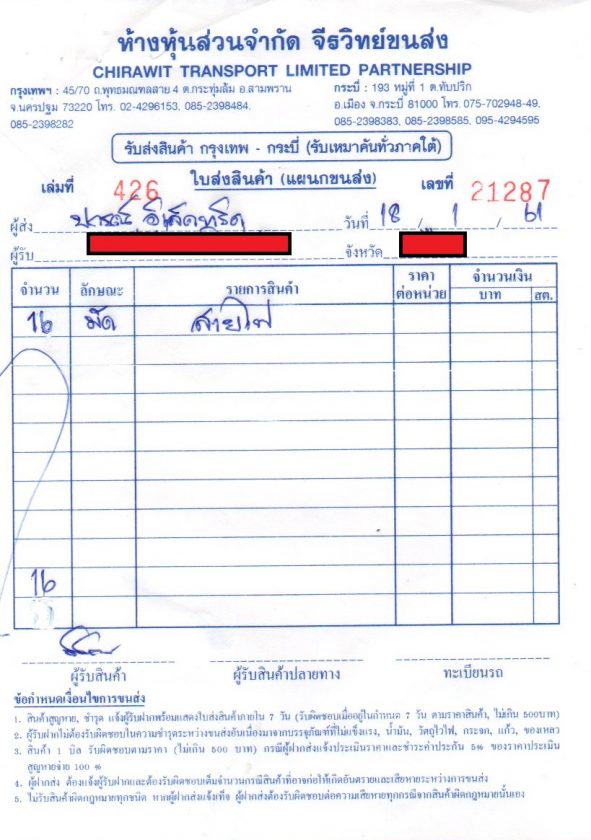 ห้างหุ้นส่วนจำกัด จีรวิทย์ขนส่ง
CHIRAWIT TRANSPORT LIMITED PARTNERSHIP
กรุงเทพฯ : 45/70 ถ.พุทธมณฑลสาย 4 ต.กระทุ่มล้ม อ.สามพราน
จ.นครปฐม 73220 โทร. 02-4296153, 085-2398484,
085-2398282
กระบี่ : 193 หมู่ที่ 1 ต.ทับปริก
อ.เมือง จ.กระบี่ 81000 โทร. 075-702948-49,
085-2398383, 085-2398585, 095-4294595
รับส่งสินค้า กรุงเทพ - กระบี่ (รับเหมาคันทั่วภาคใต้)
เล่มที่ 426 ใบส่งสินค้า (แผนกขนส่ง) เลขที่ 21287
ผู้ส่ง วันที่ 18 / 1 / 61
ผู้รับ จังหวัด
จำนวน ลักษณะ รายการสินค้า ราคาต่อหน่วย จำนวนเงิน
บาท สต.
16 มัด สายไฟ
16
ผู้รับสินค้า ผู้รับสินค้าปลายทาง ทะเบียนรถ
ข้อกำหนดเงื่อนไขการขนส่ง
1. สินค้าสูญหาย, ชำรุด แจ้งผู้รับฝากพร้อมแสดงใบส่งสินค้าภายใน 7 วัน (รับผิดชอบเมื่ออยู่ในกำหนด 7 วัน ตามราคาสินค้า, ไม่เกิน 500บาท)
2. ผู้รับฝากไม่ต้องรับผิดชอบในความชำรุดระหว่างขนส่งอันเนื่องมาจากบรรจุภัณฑ์ที่ไม่แข็งแรง, น้ำมัน, วัตถุไวไฟ, กระจก, แก้ว, ของเหลว
3. สินค้า 1 บิล รับผิดชอบตามราคา (ไม่เกิน 500 บาท) กรณีผู้ฝากส่งแจ้งประเมินราคาและชำระค่าประกัน 5% ของราคาประเมิน
สูญหายจ่าย 100 %
4. ผู้ฝากส่ง ต้องแจ้งผู้รับฝากและต้องรับผิดชอบเต็มจำนวนกรณีสินค้าที่อาจก่อให้เกิดอันตรายและเสียหายระหว่างการขนส่ง
5. ไม่รับสินค้าผิดกฎหมายทุกชนิด หากผู้ฝากส่งแจ้งเท็จ ผู้ฝากส่งต้องรับผิดชอบต่อความเสียหายทุกกรณีจากสินค้าผิดกฎหมายนั้นเอง